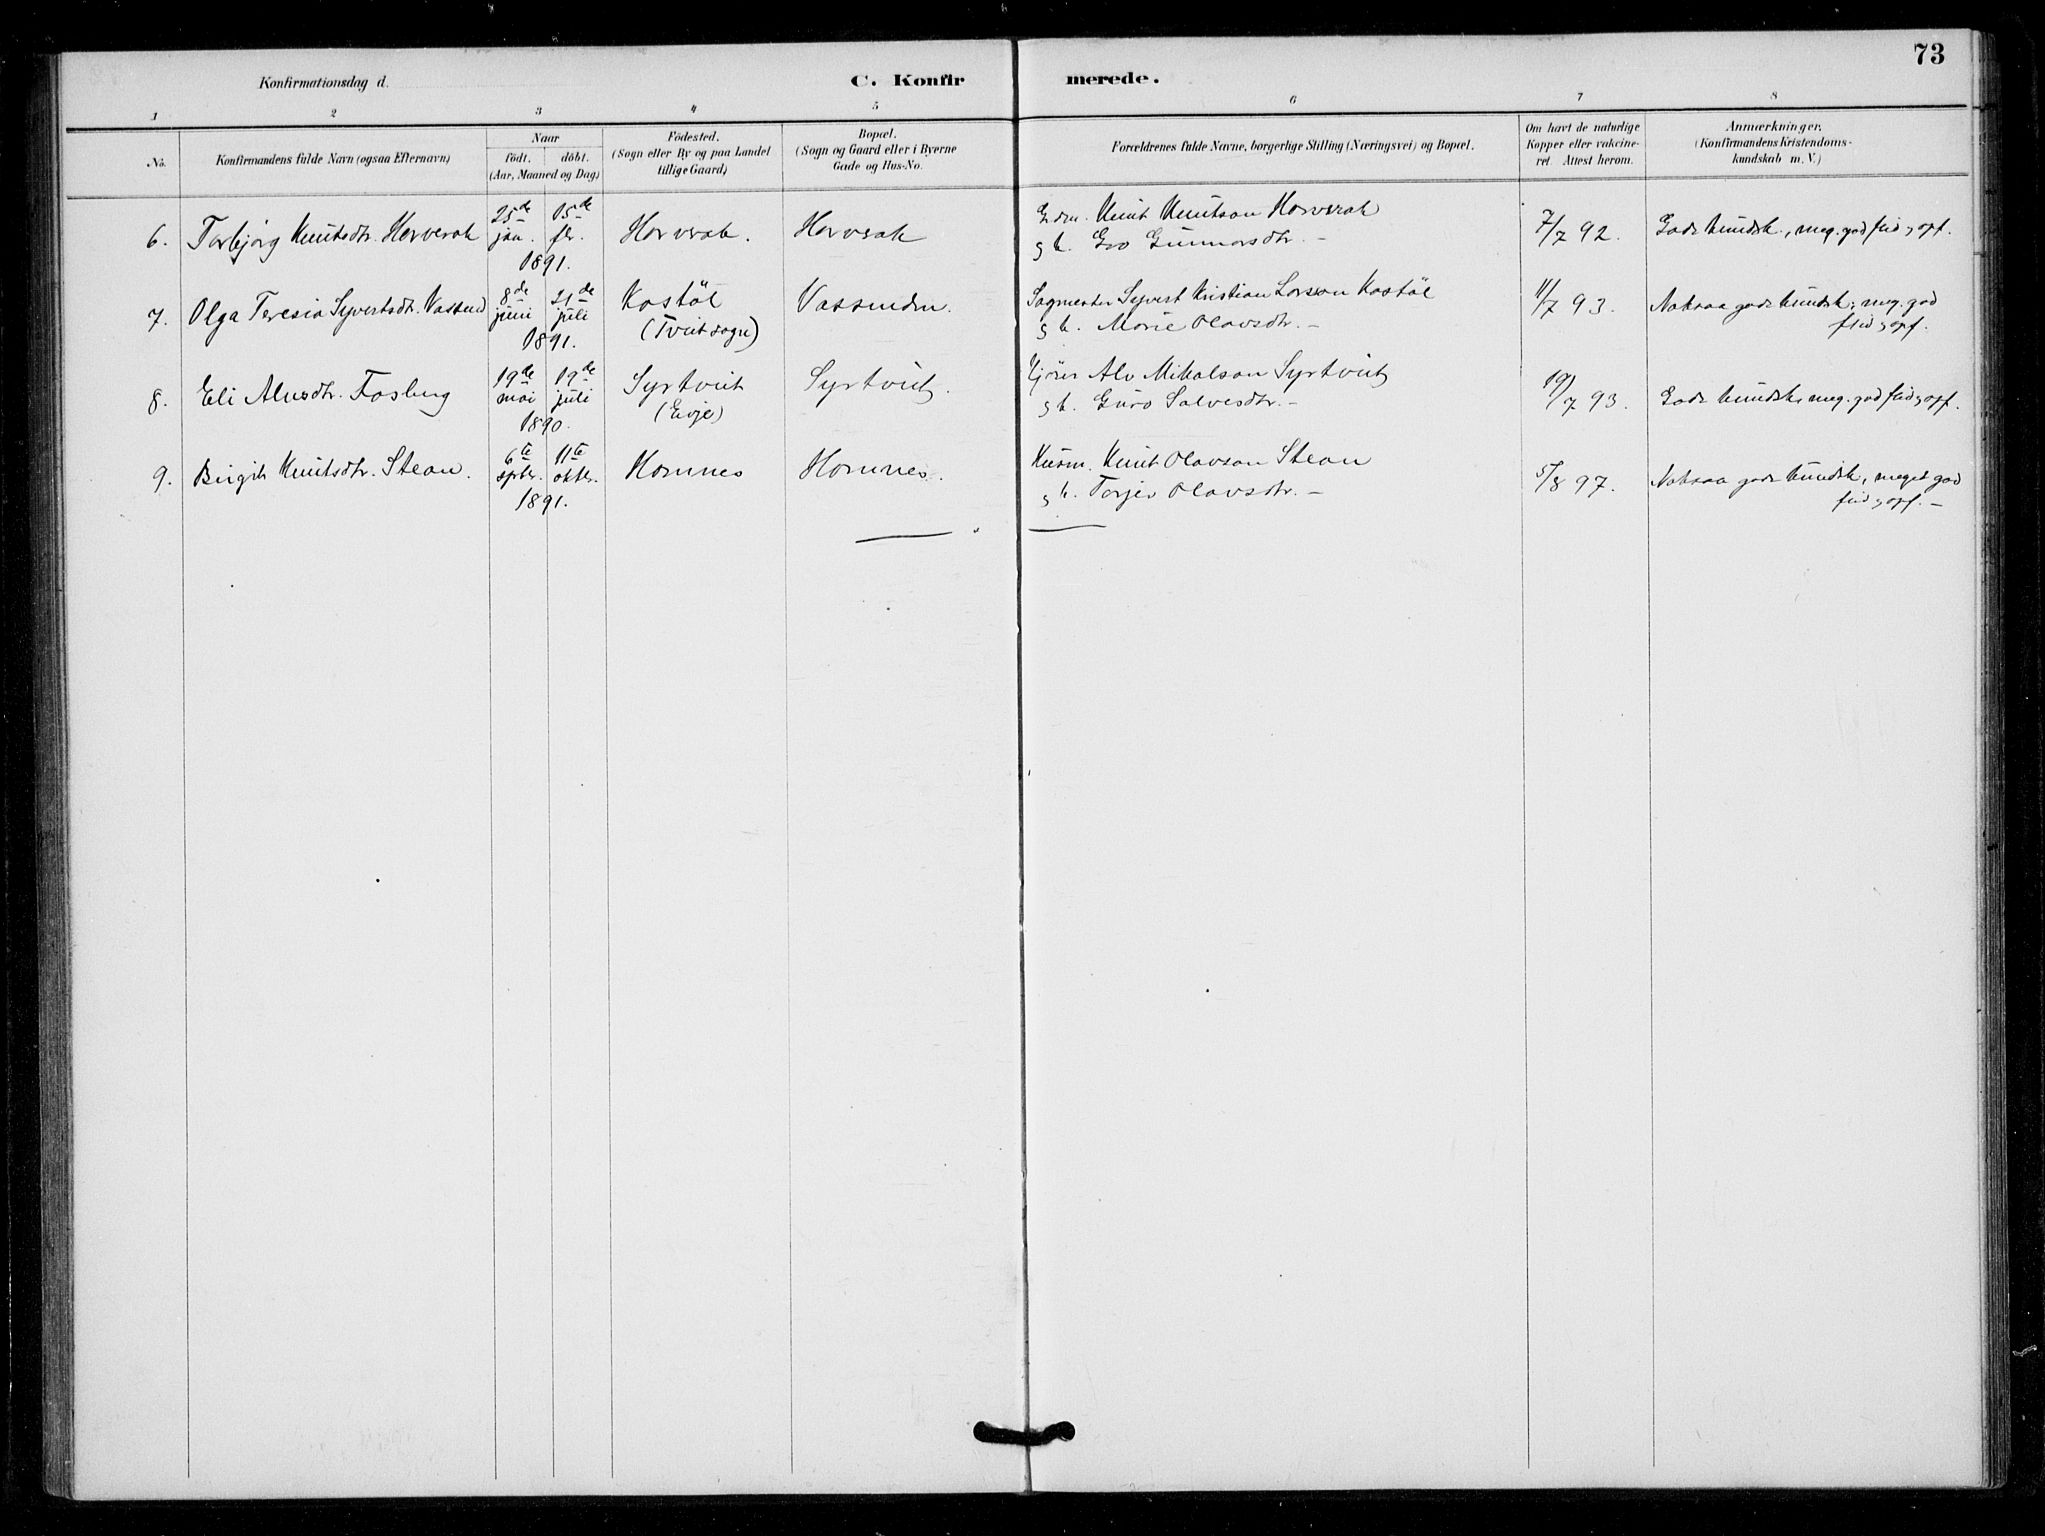 73
Konfirmationsdag d.
C. Konfirmerede.
1 2 3 4 5 6 7 8
No.
Konfirmandens fulde Navn (ogsaa Efternavn)
Naar
födt. döbt.
(Aar, Maaned og Dag)
Födested.
(Sogn eller By og paa Landet
tillige Gaard)
Bopæl.
(Sogn og Gaard eller i Byerne
Gade og Hus-No.
Forældrenes fulde Navne, borgerlige Stilling (Næringsvei) og Bopæl.
Om havt de naturlige
Kopper eller vakcine-
ret. Attest herom.
Anmærkninger.
(Konfirmandens Kristendoms-
kundskab m. V.)
6. Torbjørg Knutsdtr. Horverak 25de jan. 15de fbr. 1891. Horverak. Horverak
Gdm. Knut Knutson Horverak
og h. Gro Gunnarsdtr. –
7/7 92.
Gode kundsk., meg. god flid og opf.
7. Olga Teresia Syvertsdtr. Vasend 8de juni 21de juli 1891.
Kostöl
(Tveit sogn)
Vassenden.
Sagmester Syvert Kristian Larson Kostöl
og h. Marie Olavsdtr. –
11/7 93.
Noksaa gode kundsk., meg. god
flid og opf.
8. Eli Alvsdtr. Fosberg 19de mai 19de juli 1890.
Syrtveit
(Evje)
Syrtveit.
Alv Mikalson Syrtveit
og h. Guro Salvesdtr. –
19/7 93.
Gode kundsk. meg. god flid og opf.
9. Birgit Knutsdtr. Stean. 6te sptbr. 11te oktbr. 1891.
Homnes
Homnes.
Husm. Knut Olavson Stean
og h. Torjer Olavsdtr. –
5/8 97.
Noksaa gode kundsk., meget god
flid og opf. –